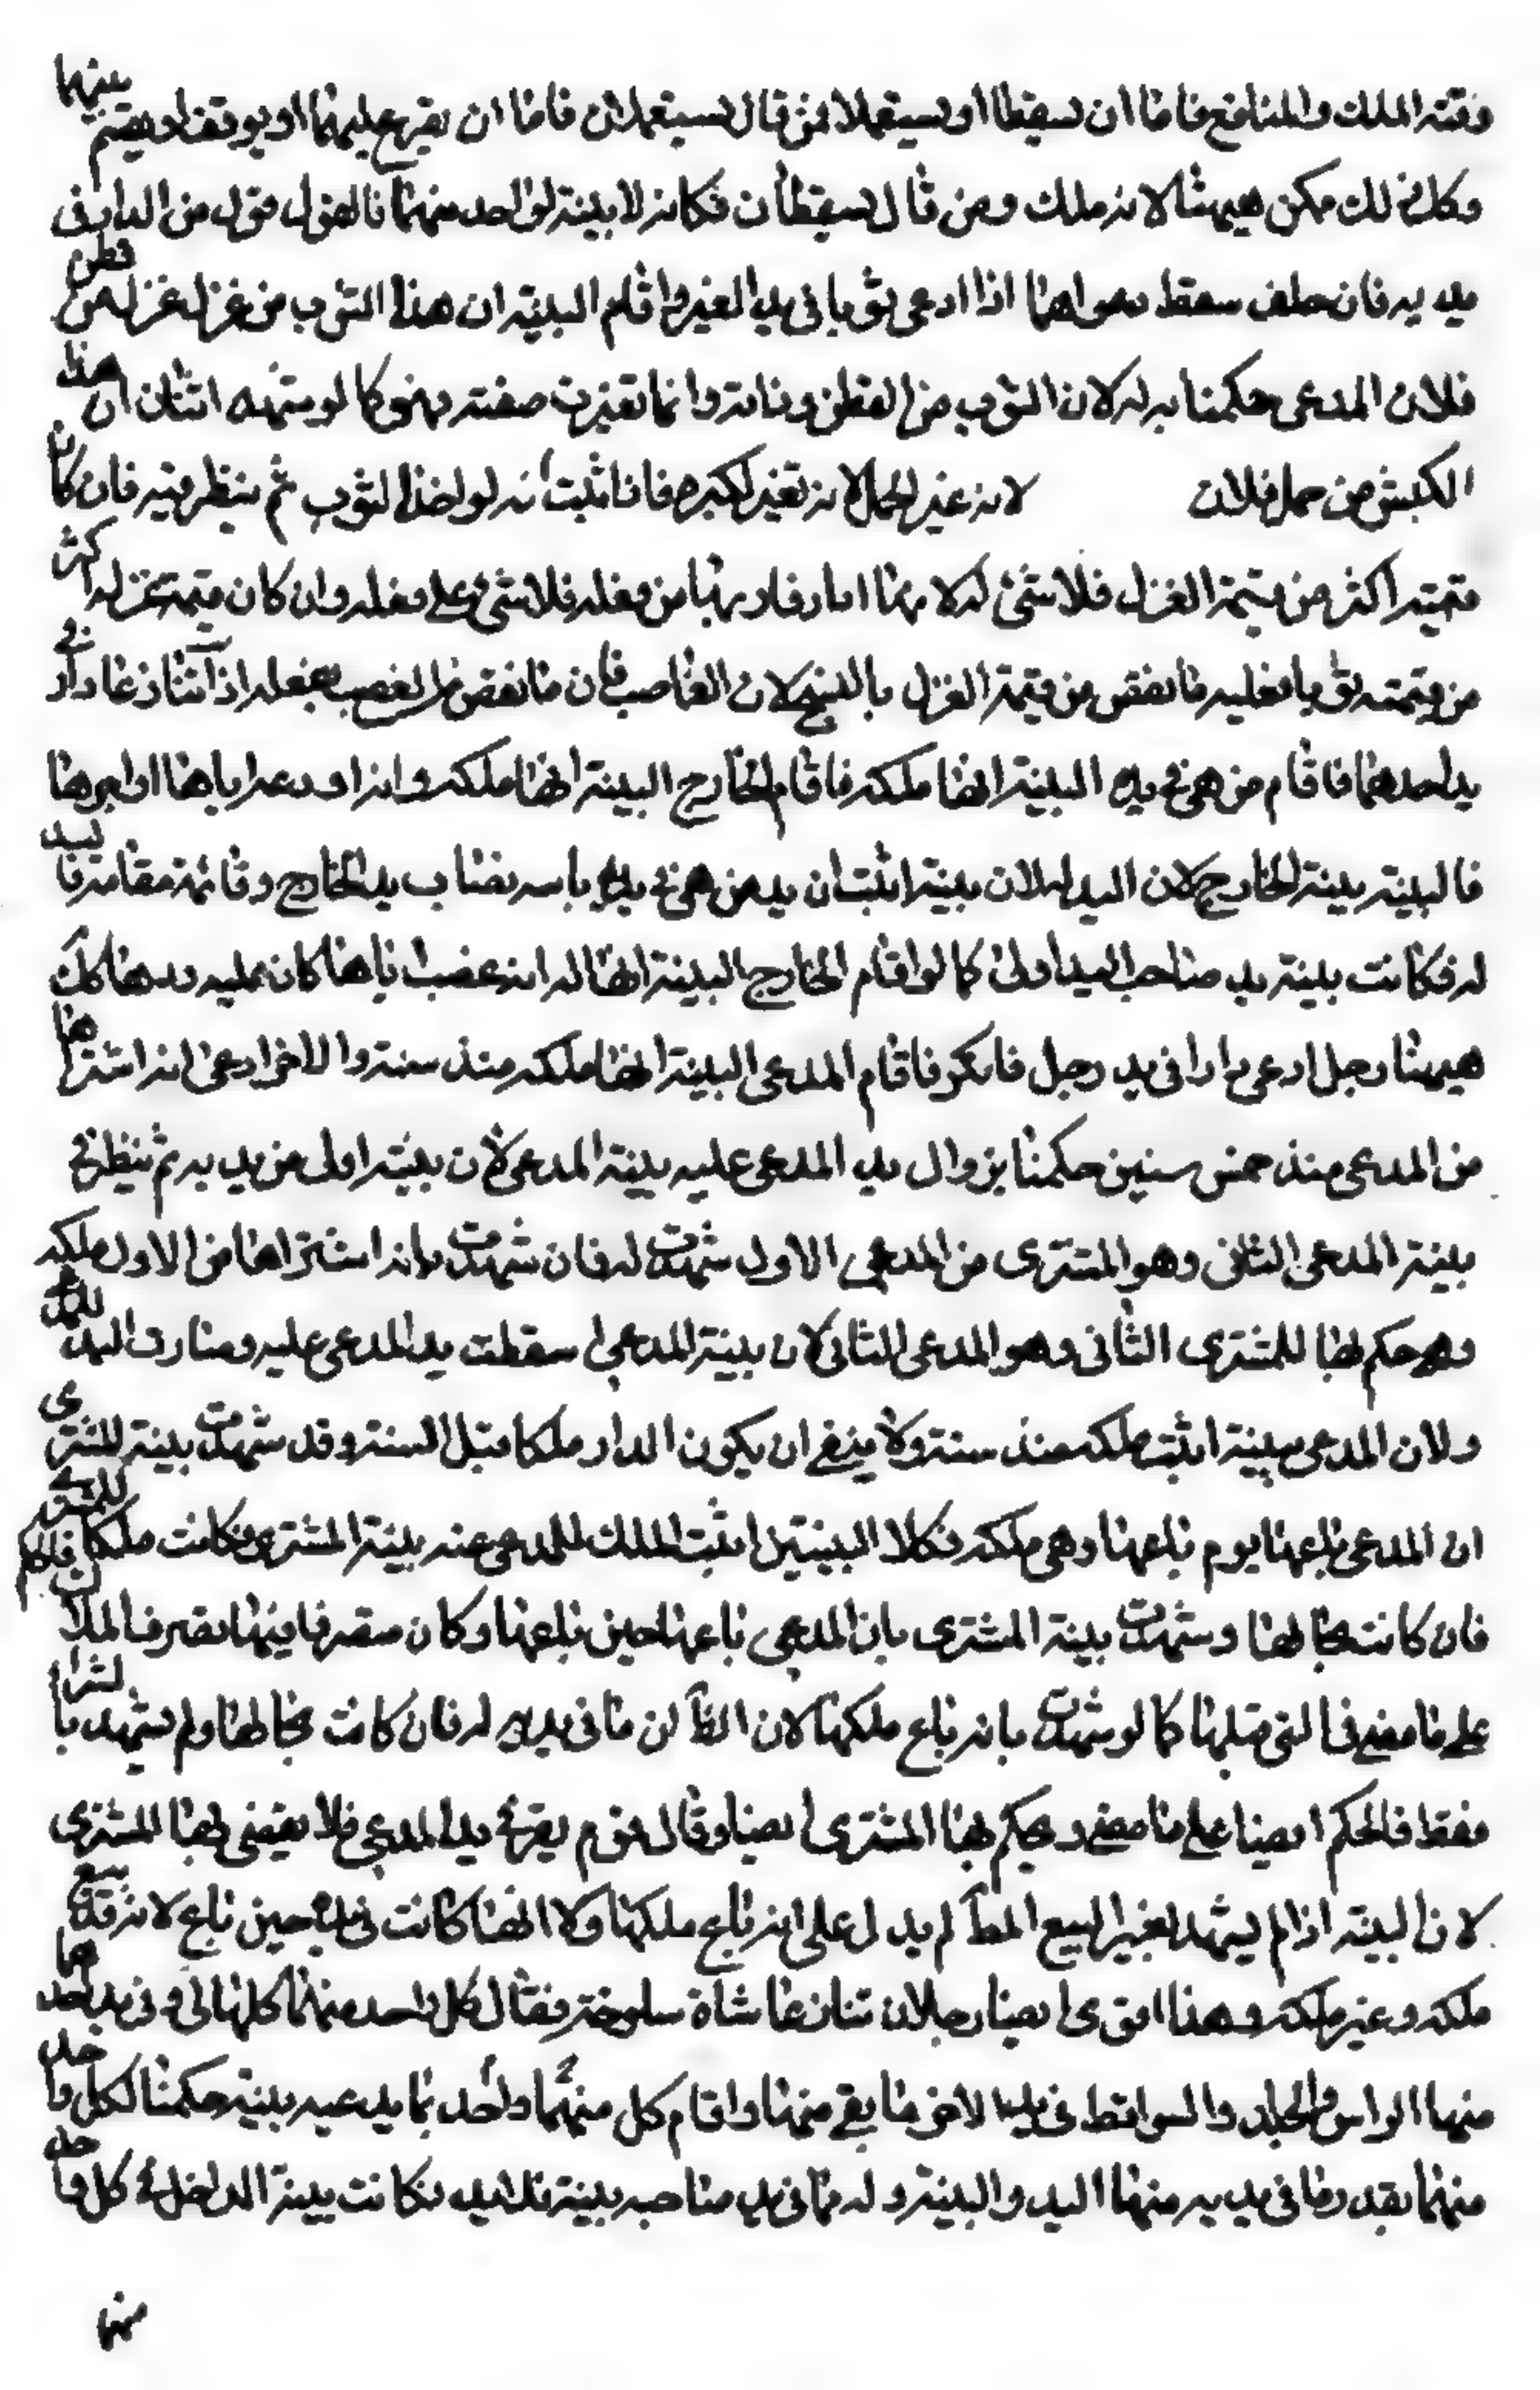 وقته الملك والمنافع فاما ان تسقطا او تستعملا فمن قال تستعملان فاما ان يقرع عليهما او يوقف او يقسم بينهما
وكل ذلك ممكن هيهنا لانه ملك ومن قال تسقطان فكانه لا بينة لواحد منهما فالقول قول من الدار في
يديه فان حلف سقط دعواهما اذا ادعى ثوبا في يد الغير واقام البينة ان هذا الثوب من غزل غزله من قطن
فلان المدعى حكمنا به له لان الثوب من القطن وذاته وانما تغيرت صفته فهو كما لو شهد اثنان ان هذا
الكبش من حمل فلان لانه عين الحمل لانه تغير لكبره فاذا ثبت انه له اخذ الثوب ثم ينظر فيه فان كان
قيمته اكثر من قيمة الغزل فلا شئ له لانها اثار فاد بها من فعله فلا شئ على فعله وان كان قيمة غزله اكثر
من قيمته ثوبا فعليه ما نقص من قيمة الغزل بالنسج لان الغاصب ضامن ما نقص الغصب بفعله اذا تنازعا دارا في
يد احدهما فاقام من هى في يده البينة انها ملكه فاقام الخارج البينة انها ملكه وانه اودعه اياها او اجرها
فالبينة بينة الخارج لان اليد له لان بينته اثبت ان يد من هى في يديه نائبة ناب يد الخارج وقائمة مقامه فاليد
له فكانت بينة يد صاحب اليد اولى كما لو اقام الخارج البينة انها له انه غصب اياها كان عليه ردها كك
هيهنا رجل ادعى دارا في يد رجل فانكر فاقام المدعى البينة انها ملكه منذ سنة والاخر ادعى انه اشتراها
من المدعى منذ خمس سنين حكمنا بزوال يد المدعى عليه بينة المدعى لان بينته اولى من يديه ثم ينظر في
بينة المدعى الثاني وهو المشترى من المدعى الاول شهدت له فان شهدت بانه اشتراها من الاول ملكه
وهى حكم لها للمشترى الثاني وهو المدعى الثاني لان بينة المدعى سقطت يد المدعى عليه وصارت اليد للمدعى
ولان المدعى بينة اثبت ملكه منذ سنة ولا ينفى ان يكون الدار ملكا قبل السنة وقد شهدت بينة المشترى
ان المدعى باعها يوم باعها وهى ملكه فكلا البينتين اثبت الملك للمدعى عنه بينة المشترى فكانت ملكا للمشترى
فان كانت بحالها وشهدت بينة المشترى بان المدعى باعها حين باعها وكان متصرفا فيها تصرف الملاك فالحكم
على ما مضى في التي قبلها كما لو شهدت بانه باع ملكها لان الظآ ان ما في يديه له فان كانت بحالها ولم تشهد بالشراء
فقط فالحكم ايضا على ما مضى ويحكم بها المشترى ايضا وقال قوم يقر في يد المدعى فلا يقضى بها المشترى
لان البينة اذا لم يشهد بغير البيع المط لم يدل على انه باع ملكها ولا انها كانت في يده حين باع لانه قد يبيع
ملكه وغير ملكه وهذا اقوى ايضا رجلان تنازعا شاة مسلوخة فقال كل واحد منهما كلها لى وفى يد احدهما
منها الراس والجلد والسواقط في يد الاخر ما بقي منها واقام كل منهما واحد بما يدعيه بينة حكمنا لكل واحد
منهما بقدر ما في يديه منها اليد والبينة وله ما في يد صاحبه بينة بلا يد فكانت بينة الداخل في كل واحد
منها